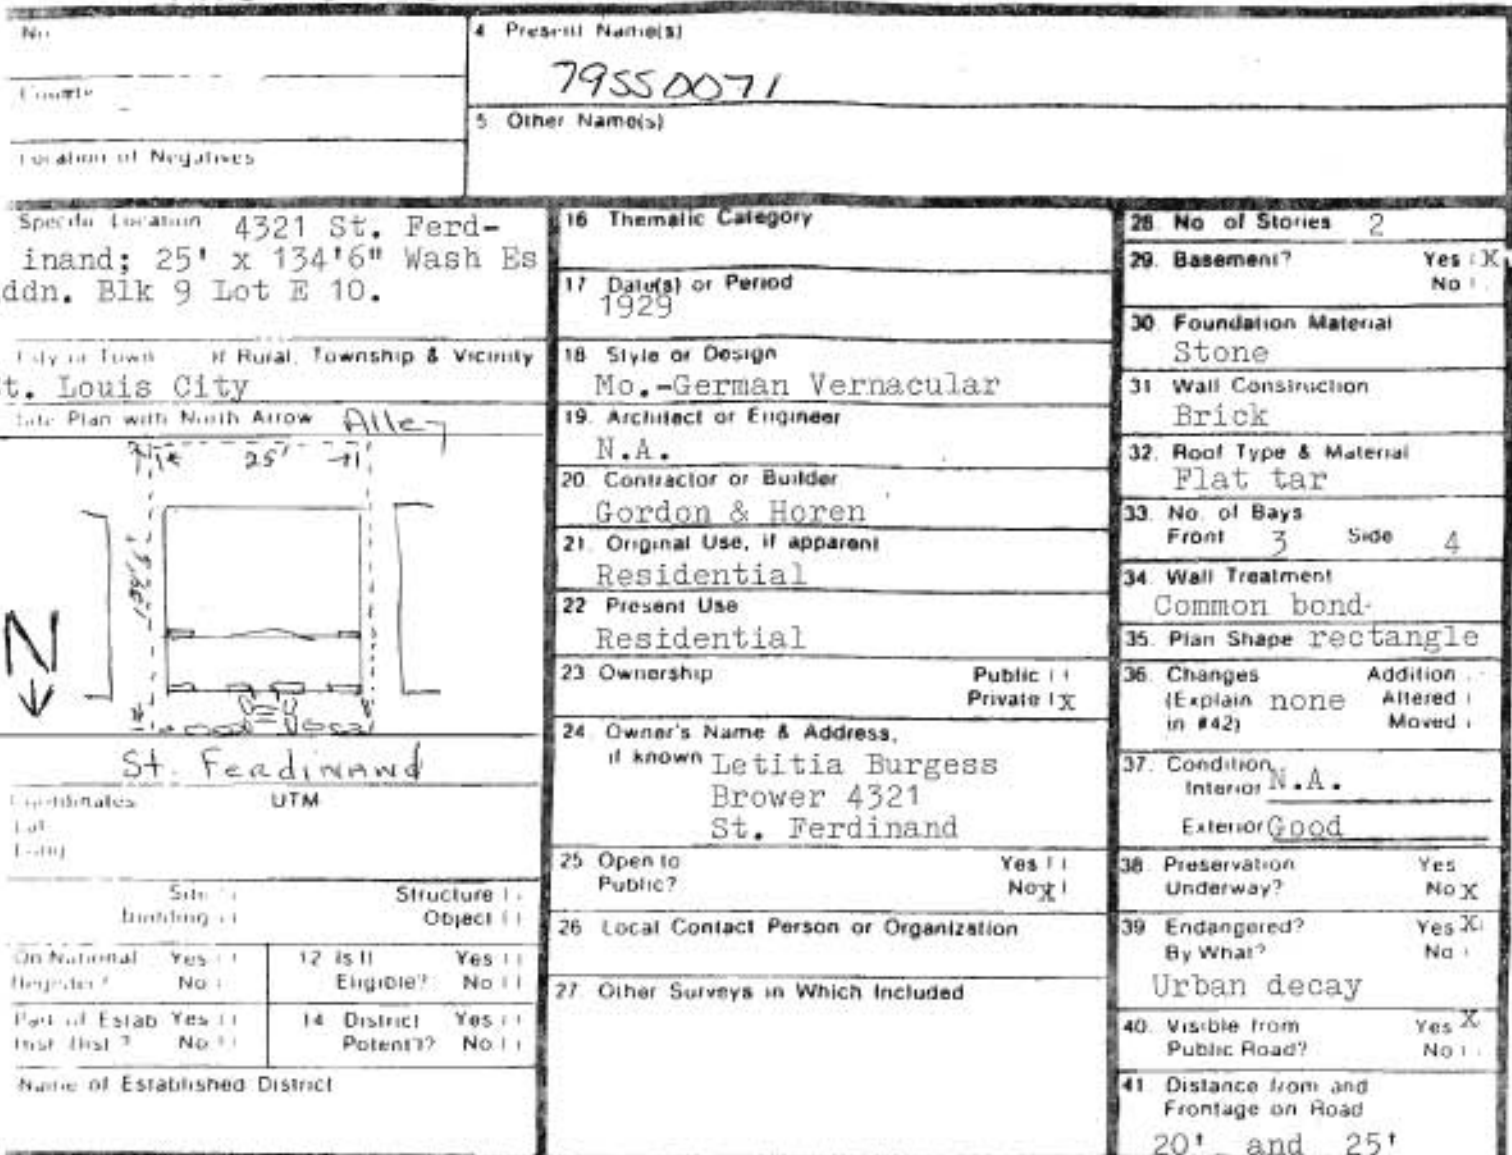 No.
4 Present Name(s)
79550071
County
5 Other Name(s)
Location of Negatives
Specific Location 4321 St. Ferd-
inand; 25' x 134'6" Wash Es
ddn. Blk 9 Lot E 10.
City or Town If Rural, Township & Vicinity
t. Louis City
Site Plan with North Arrow Alley
25'
N
St. Ferdinand
Coordinates UTM
Lat
Long
Site Structure
Building Object
On National Register? Yes No
12 Is It Eligible? Yes No
Part of Estab Hist Dist? Yes No
14 District Potent'l? Yes No
Name of Established District
16 Thematic Category
17 Date(s) or Period
1929
18 Style or Design
Mo.-German Vernacular
19. Architect or Engineer
N.A.
20. Contractor or Builder
Gordon & Horen
21. Original Use, if apparent
Residential
22 Present Use
Residential
23 Ownership Public
Private X
24. Owner's Name & Address,
if known Letitia Burgess
Brower 4321
St. Ferdinand
25 Open to Yes
Public? No X
26 Local Contact Person or Organization
27. Other Surveys in Which Included
28. No of Stories 2
29. Basement? Yes X
No
30. Foundation Material
Stone
31 Wall Construction
Brick
32. Roof Type & Material
Flat tar
33. No. of Bays
Front 3 Side 4
34. Wall Treatment
Common bond
35. Plan Shape rectangle
36. Changes Addition
(Explain none Altered
in #42) Moved
37. Condition
Interior N.A.
Exterior Good
38. Preservation Yes
Underway? No X
39. Endangered? Yes X
By What? No
Urban decay
40. Visible from Yes X
Public Road? No
41. Distance from and
Frontage on Road
20' and 25'